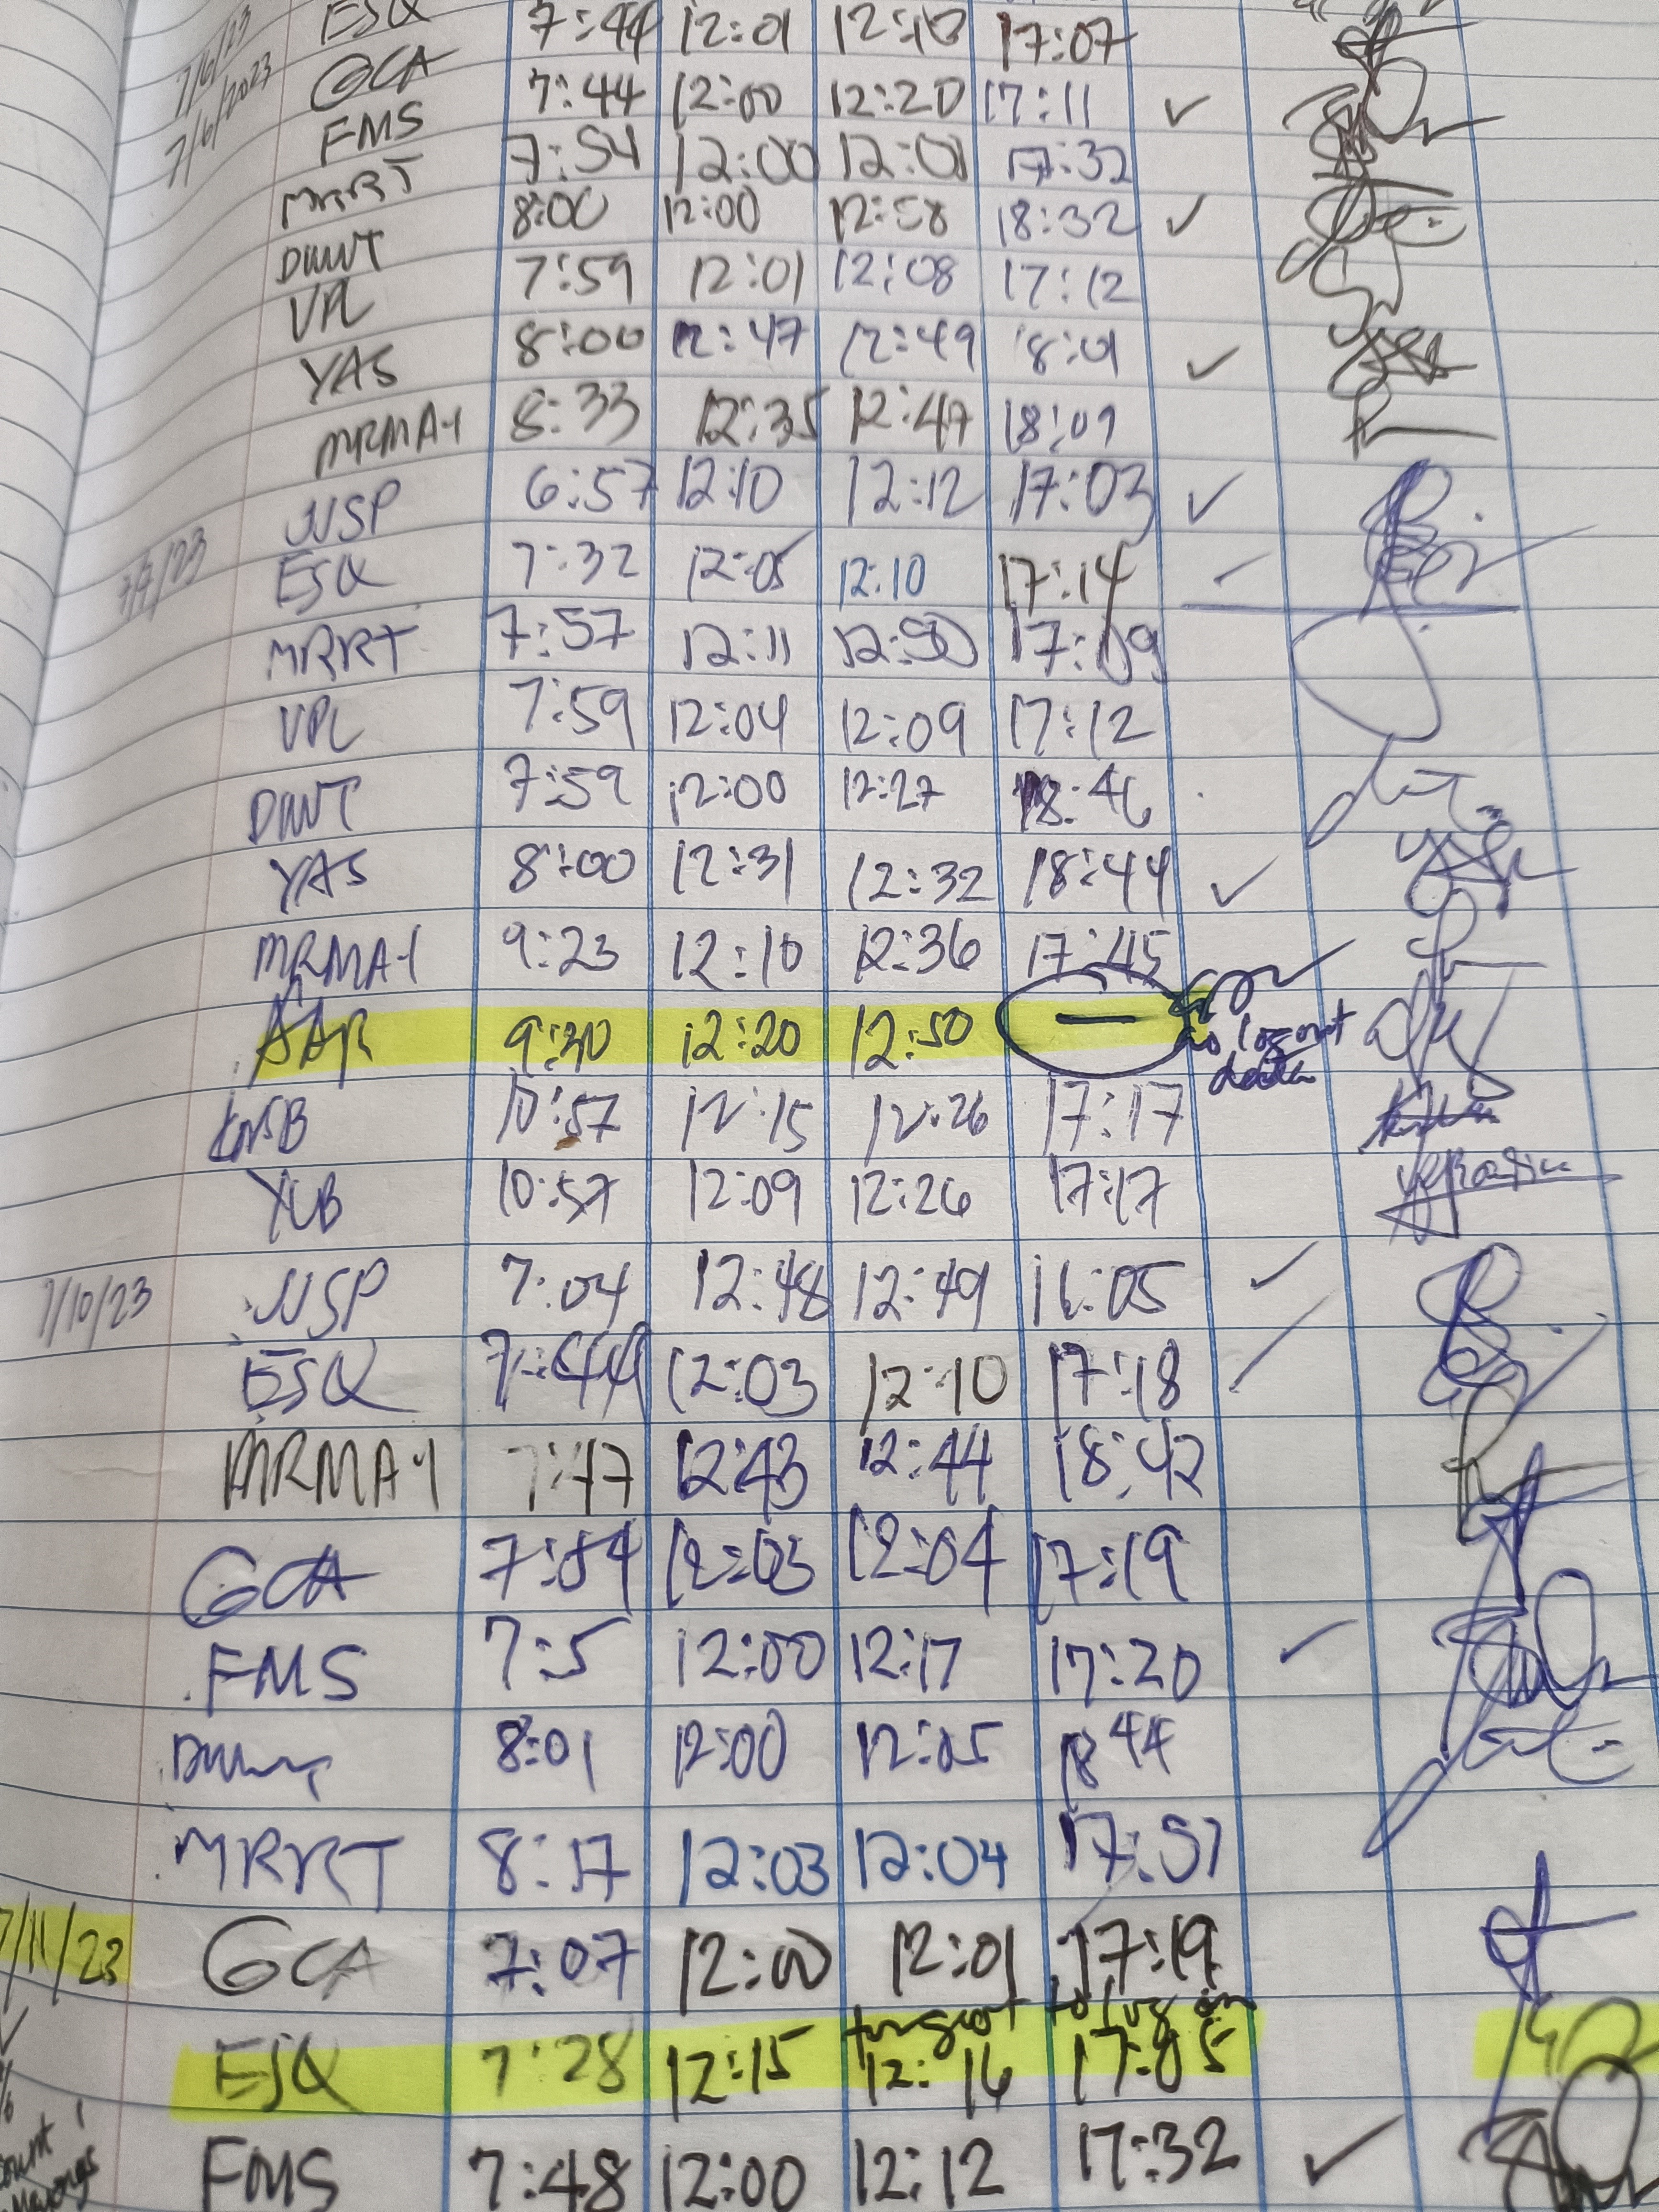 7/6/23 ESQ 7:44 12:01 17:07
7/6/2023 GCA 7:44 12:00 12:20 17:11 ✓
FMS 7:54 12:00 12:01 17:32
MRRT 8:00 12:00 12:58 18:32 ✓
DWNT 7:59 12:01 12:08 17:12
VPL 8:00 12:47 12:49 18:01 ✓
YAS 8:33 12:35 12:47 18:09
MRMA-1 6:57 12:10 12:12 17:03 ✓
JJSP 7:32 12:05 12:10 17:14
7/7/23 ESQ 7:57 12:11 12:50 17:09
MRRT 7:59 12:04 12:09 17:12
VPL 7:59 12:00 12:27 18:46
DWNT 8:00 12:31 12:32 18:44 ✓
YAS 9:23 12:10 12:36 17:45
MRMA-1
AAR 9:30 12:20 12:50 —
no log out data
KNSB 10:57 12:15 12:26 17:17
YCB 10:57 12:09 12:26 17:17
7/10/23 JJSP 7:04 12:48 12:49 16:05 ✓
ESQ 7:44 12:03 12:10 17:18
MRMA-1 7:47 12:43 12:44 18:42
GCA 7:54 12:03 12:04 17:19
FMS 7:5 12:00 12:17 17:20 ✓
8:01 12:00 12:05 18 44
MRRT 8:17 12:03 12:04 17:57
7/11/23 GCA 7:07 12:00 12:01 17:19
forgot to log in
ESQ 7:28 12:15 12:16 17:05
FMS 7:48 12:00 12:12 17:32 ✓